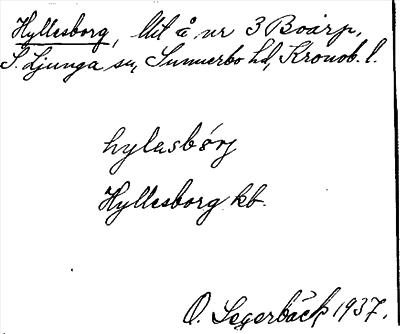 Hyllesborg, litl å nr 3 Boarp,
S. Ljunga sn, Sunnerbo hd, Kronob. l.
hylasbórj
Hyllesborg kb.
O. Segerbäck 1937.